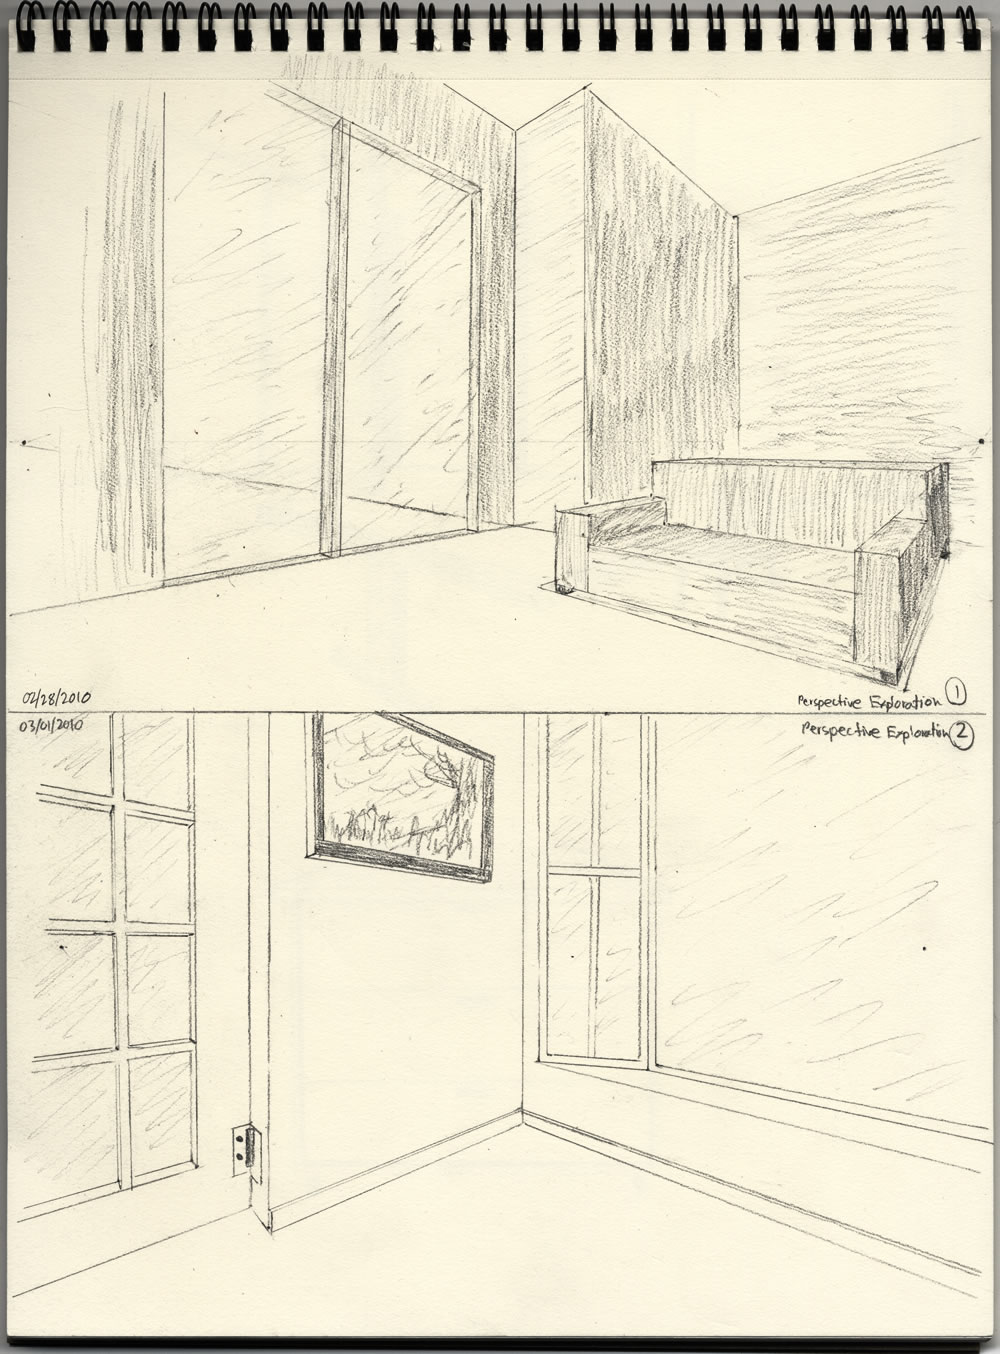 02/28/2010
Perspective Exploration 1
03/01/2010
Perspective Exploration 2